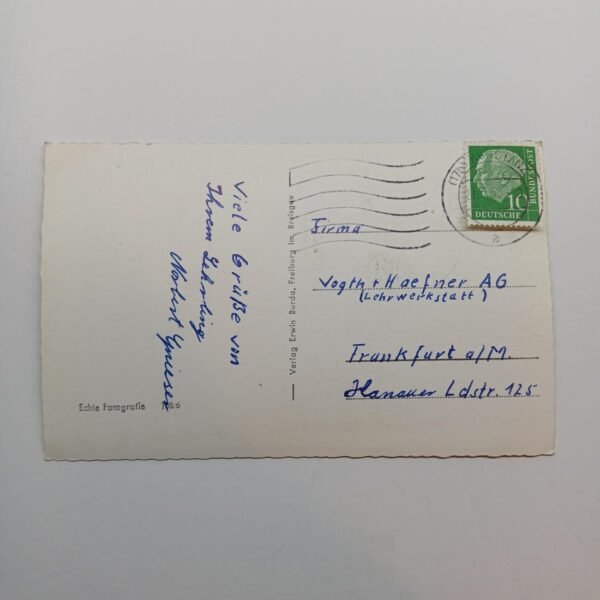 Viele Grüße von
Ihrem Lehrling
Norbert
Echte Fotografie
Verlag Erwin Burda, Freiburg im Breisgau
10
DEUTSCHE
BUNDESPOST
(17b)
a
Firma
Vogth + Haefner AG
(Lehrwerkstatt)
Frankfurt a/M.
Hanauer Ldstr. 125